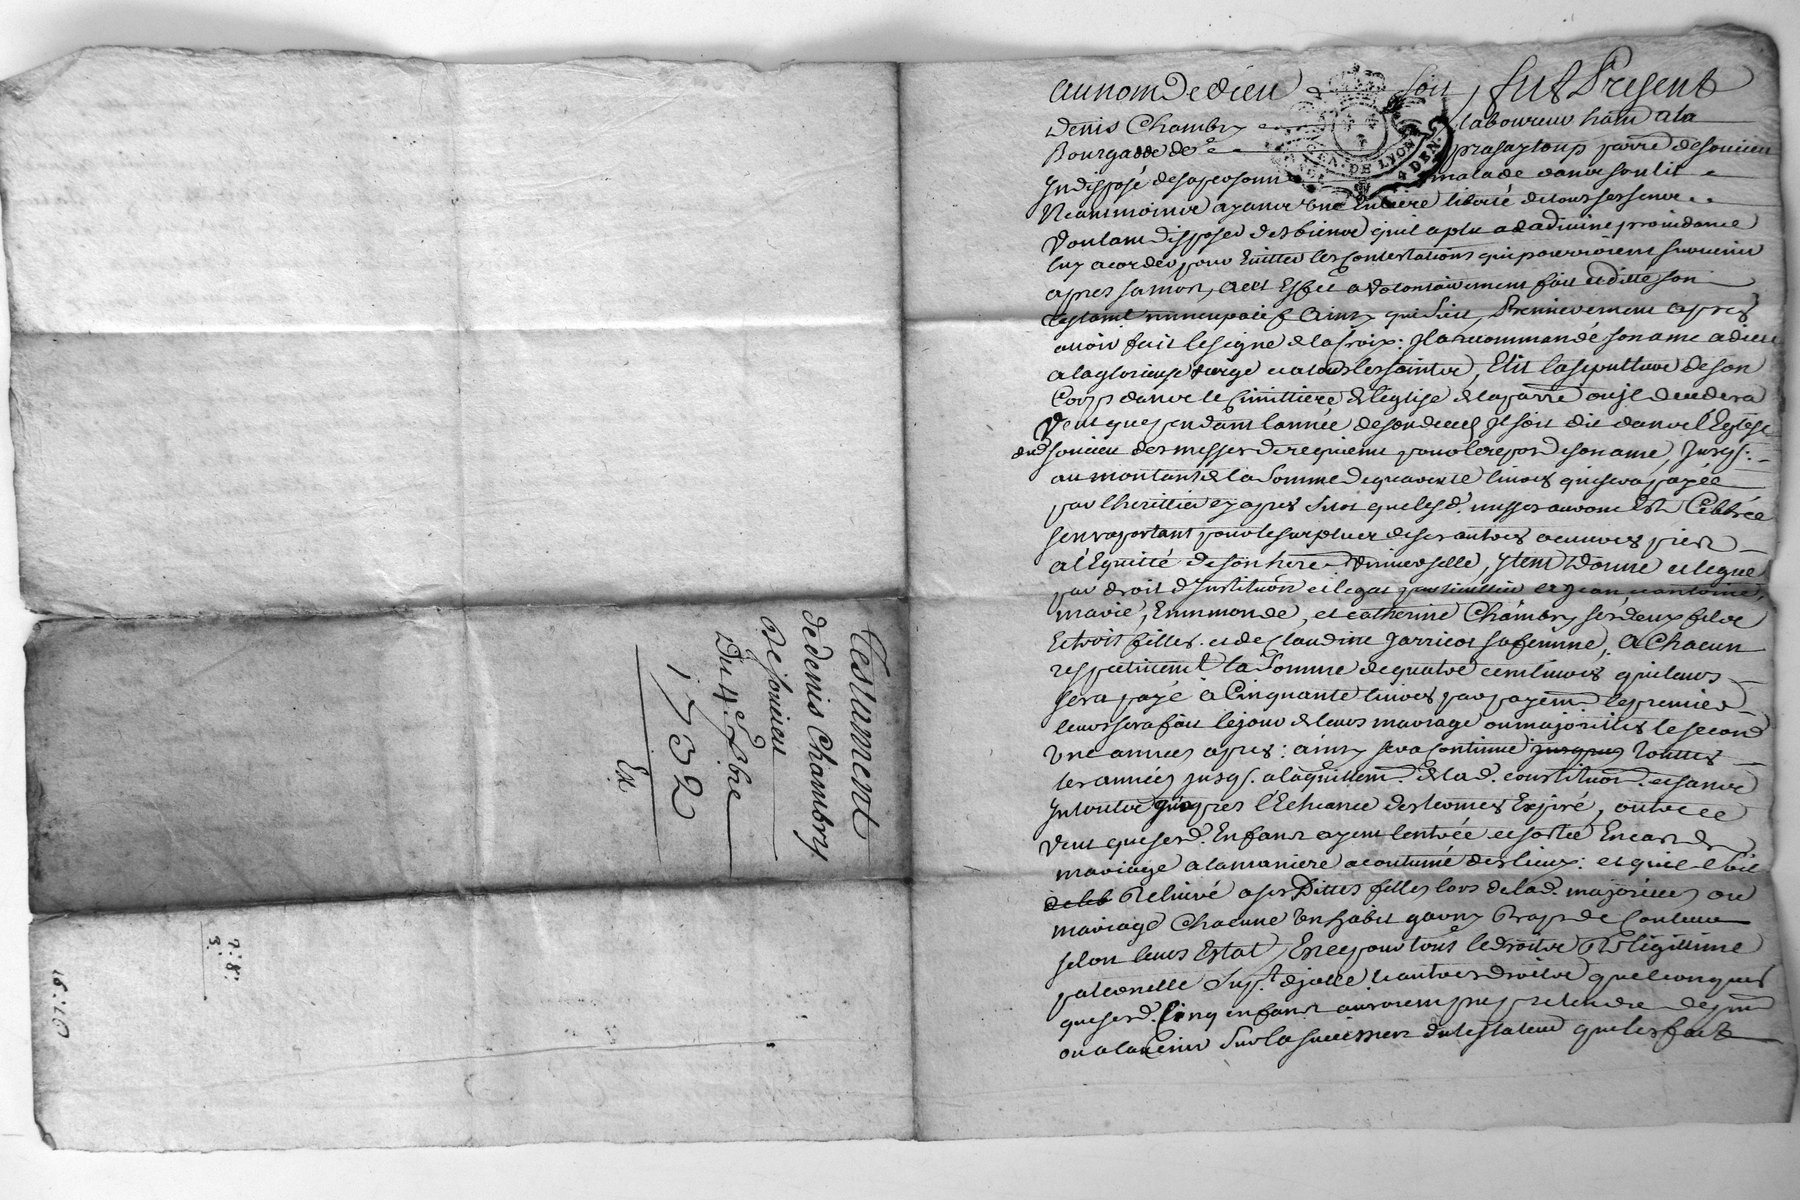 Testament
de denis Chambry
De soucieu
Du 4.e 7bre
1732
Ex.
9: 8:
3.
au nom De dieu soit, fut Present
Denis Chambry laboureur habt a la
Bourgade de parre de soucieu
Indisposé de sa personne malade dans son lit
Neantmoins ayant une Entiere liberté de tous ses sens
Voulant disposer des biens qu'il a plu a la divine providance
luy acorder pour Eviter les Contestations qui pourroient survenir
apres sa mort, a cet Effet a volontairement fait et ditté son
testamt nuncupatif Ainsy que s'suit, Premierement apres
avoir fait le signe de la Croix: Il a recommandé son ame a dieu
a la glorieuse vierge et a tous les saints, Elit la sepulture de son
Corps dans le Cimittiere de l'eglise de la parre ou il decedera
Veut que pendant l'année de son deces Il soit dit dans l'Eglise
dud soucieu des messes de requiem pour le repos de son ame, Jusqs:
au montant de la somme de quarante livres qui sera payée
par l'heritier cy apres sitot que lesd. messes auront Esté Celebrée
sen raportant pour le surplus de ses autres oeuvres pies
a l'Equitté de son here. universelle, Item Donne et legue
par droit d'Institution et legat particulier a Jean et antoine,
marie, Emmonde, et catherine Chambry ses deux fils
Et trois filles. et de Claudine Jarricot sa femme, A Chacun
respectivemt la Somme de quatre cent livres qui leurs
sera payé a Cinquante livres par payemt le premier
leurs sera fait le jour de leurs mariage ou majorittés le second
Une année apres: ainsy sera continué jusques touttes
les années jusqs. a laquittemt de lad. constitution. et sans
Interest qu'apres l'Echeance des termes Expiré, outre ce
Veut que sesd. Enfans ayent l'entrée et sortie En cas de
mariage a la maniere acoutumé des lieux: et qu'il soit
delivré a ses Dittes filles lors de lad. majorittés ou
mariage Chacune Un habit garny Drap de Couleur
selon leurs Estat, Et ce pour tous le droits De legittime
paternelle Supt. d'jcelle et autres droits quelconques
que sesd. Cinq enfans auroient peu pretendre de psnt
ou a lavenir Sur la succession du testateur qui les fait